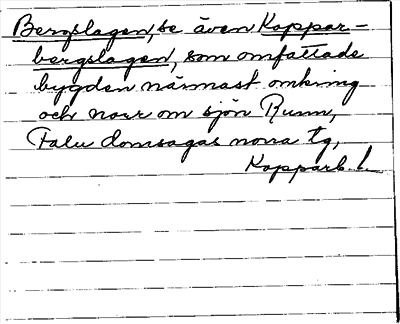 Bergslagen, se även Koppar-
bergslagen, som omfattade
bygden närmast omkring
och norr om sjön Runn,
Falu domsagas norra tg,
Kopparb. l.